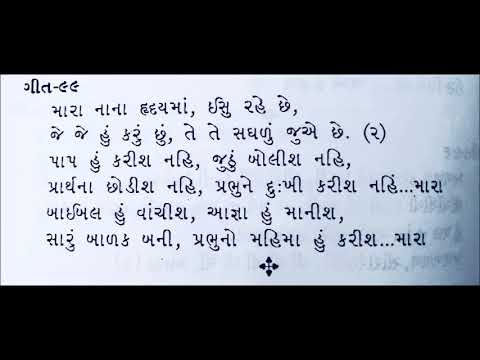 ગીત-૯૯
મારા નાના હૃદયમાં, ઈસુ રહે છે,
જે જે હું કરું છું, તે તે સઘળું જુએ છે. (૨)
પાપ હું કરીશ નહિ, જુઠું બોલીશ નહિ,
પ્રાર્થના છોડીશ નહિ, પ્રભુને દુઃખી કરીશ નહિં...મારા
બાઈબલ હું વાંચીશ, આજ્ઞા હું માનીશ,
સારું બાળક બની, પ્રભુનો મહિમા હું કરીશ...મારા